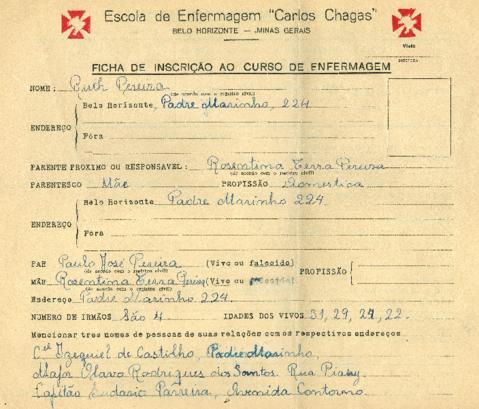 Escola de Enfermagem "Carlos Chagas"
BELO HORIZONTE — MINAS GERAIS
Visto
FICHA DE INSCRIÇÃO AO CURSO DE ENFERMAGEM
NOME: Ruth Pereira
(de acordo com o registro civil)
Belo Horizonte Padre Marinho, 224
ENDEREÇO
Fóra
PARENTE PROXIMO OU RESPONSAVEL: Rosentina Terra Pereira
(de acordo com o registro civil)
PARENTESCO Mãe PROFISSÃO domestica
Belo Horizonte Padre Marinho 224
ENDEREÇO
Fora
PAE Paulo José Pereira (Vivo ou falecido)
(de acordo com o registro civil)
PROFISSÃO
MÃE Rosentina Terra Pereira (Vivo ou
(de acordo com o registro civil)
Endereço Padre Marinho 224.
NÚMERO DE IRMÃOS São 4 IDADES DOS VIVOS 31, 29, 24, 22.
Mencionar tres nomes de pessoas de suas relações com os respectivos endereços
Cel Izequiel de Castilho, Padre Marinho,
Major Olavo Rodrigues dos Santos. Rua Piauy
Capitão Parreira, Avenida Contorno